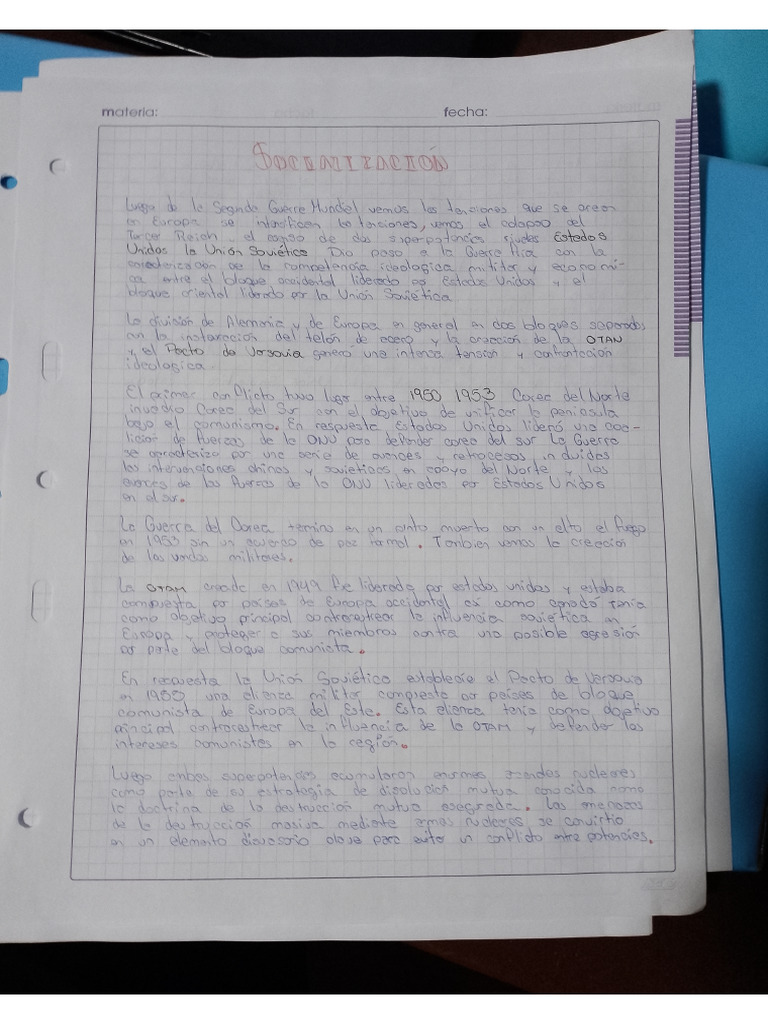 materia: fecha:
Socialización
Luego de la Segunda Guerra Mundial vemos las tensiones que se crean
en Europa se intensifican las tensiones, vemos el colapso del
Tercer Reich el de dos superpotencias rivales Estados
Unidos la Unión Soviética Dio paso a la Guerra Fria con la
caracterización de la competencia ideologica militar y económi-
ca entre el bloque occidental liderado por Estados Unidos y el
bloque oriental liderado por la Unión Soviética
La división de Alemania y de Europa en general en dos bloques separados
con la instauracion del telón de acero y la creación de la OTAN
y el Pacto de Varsovia genero una intensa tensión y confrontación
ideologica
El primer conflicto tuvo lugar entre 1950 1953 Corea del Norte
invadio Corea del Sur con el objetivo de unificar la peninsula
bajo el comunismo. En respuesta Estados Unidos lideró una coa-
licion de fuerzas de la ONU para defender corea del sur La Guerra
se caracterizo por una serie de avances y retrocesos, incluidas
las intervenciones chinas y sovieticas en apoyo del Norte y los
avances de las fuerzas de la ONU lideradas por Estados Unidos
en el sur.
La Guerra del Corea termino en un punto muerto con un alto el fuego
en 1953 sin un acuerdo de paz formal. Tanbien vemos la creación
de los vandos militares.
La OTAN creada en 1949 fue liderada por estados unidos y estaba
compuesta por países de Europa occidental asi como canadá tenía
como objetivo principal contrarrestrar la influencia soviética en
Europa y proteger a sus miembros contra una posible agresión
por parte del bloque comunista.
En respuesta la Unión Soviética establecio el Pacto de Varsovia
en 1955 una alianza militar compuesta por países de bloque
comunista de Europa del Este. Esta alianza tenía como objetivo
principal contrarrestrar la influencia de la OTAN y defender los
intereses comunistas en la región.
Luego ambas superpotencias acumularon enormes nucleares
como parte de su estrategia de disolución mutua conocida como
la doctrina de la destrucción mutua asegurada. Las amenazas
de la destrucción masiva mediante armas nucleares se convirtio
en un elemento disuasorio clave para evitar un conflicto entre potencias.